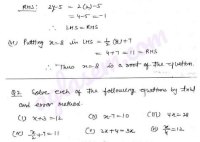 RHS: 2x-5 = 2(2)-5
= 4-5 = -1
∴ LHS = RHS
(vi) Putting x=8 in LHS = ½(x)+7
= 4+7 = 11 = RHS
∴ Thus x=8 is a root of the equation.
Q2. Solve each of the following equations by trial
and error method.
(i) x+3=12 (ii) x-7=10 (iii) 4x=28
(iv) x/2+7=11 (v) 2x+4=3x (vi) x/4=12